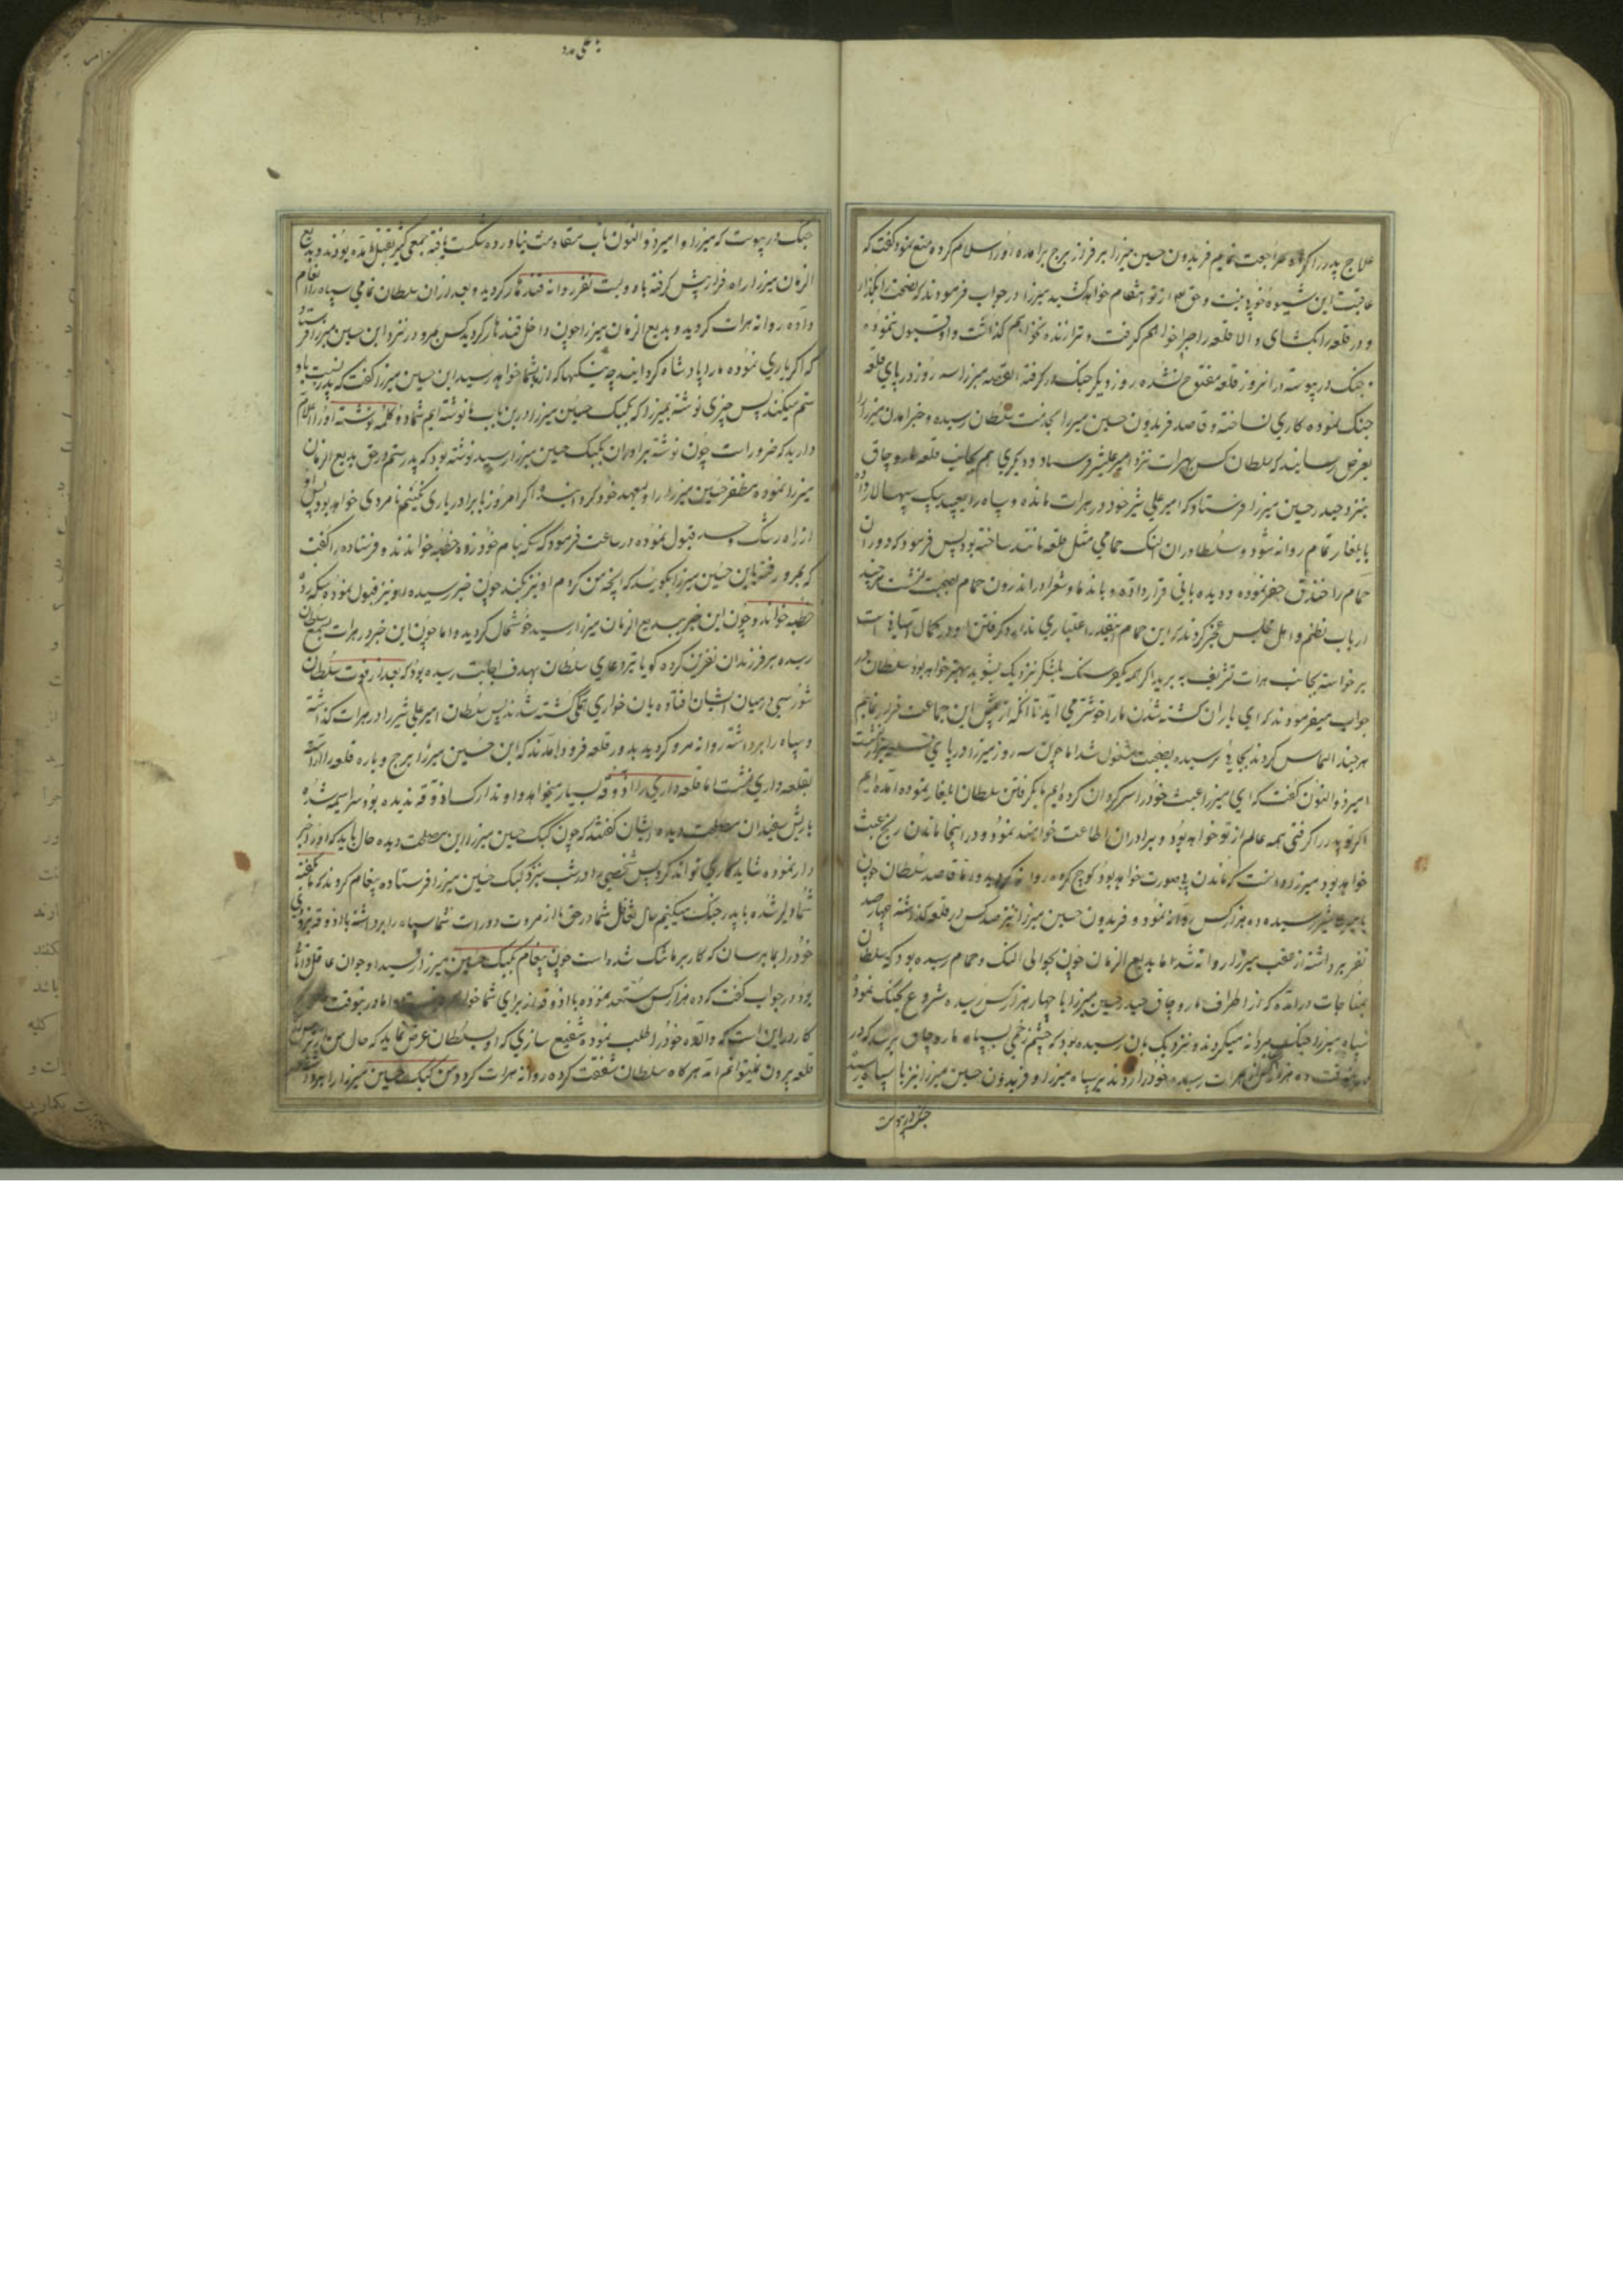 علاج پدر را کرده مراجعت نمایم فریدون حسین میرزا بر فراز برج برآمده او را سلام کرده منع نمود گفت که
عاقبت این شیوه خوب نیست و حق از تو انتقام خواهد کشید میرزا در جواب فرمودند که نصیحت را بگذار
و در قلعه را بگشای و الا قلعه را جبرا خواهم گرفت و ترا زنده نخواهم گذاشت و او قبول ننموده
جنگ در پیوسته در آنروز قلعه مفتوح نشده روز دیگر جنگ در گرفته القصه میرزا سه روز در پای قلعه
جنگ نموده کاری نساخته و قاصد فریدون حسین میرزا بخدمت سلطان رسیده و خبر آمدن میرزا را
بعرض رسانید که سلطان کس بهرات نزد امیر علیشیر فرستاد و دیگری هم بجانب قلعه مارو چاق
بنزد حیدر حسین میرزا فرستاد که امیر علی شیر خود در هرات مانده و سپاه را سپهسالار
بایلغار تمام روانه شود و سلطان در آن النگ حمامی مثل قلعه مانند ساخته بود پس فرمود که دور آن
حمام را خندق حفر نموده و دیده بانی قرار داده و با ندما و شعرا در اندرون حمام بصحبت نشست هر چند
ارباب نظم و اهل مجلس عجز کردند که این حمام اینقدر اعتباری ندارد و گرفتن او در کمال آسانی است
برخواسته بجانب هرات تشریف به برید اگر همه یکفرسنگ بلشکر نزدیک بشوید بهتر خواهد بود سلطان در
جواب میفرمودند که ای یاران کشته شدن ما را خوشتر می آید تا آنکه از پیش این جماعت فرار نمایم
هر چند التماس کردند بجایی نرسیده بصحبت مشغول شد اما چون سه روز میرزا در پای قلعه
امیر ذوالنون گفت که ای میرزا عبث خود را سرگردان کرده ایم ما بگرفتن سلطان ایلغار نموده آمده ایم
اگر تو پدر را گرفتی همه عالم از تو خواهد بود و برادران اطاعت خواهند نمود و در اینجا ماندن رنج عبث
خواهد بود میرزا دانست که ماندن بی صورت خواهد بود کوچ کرده روانه گردید و رفتا قاصد سلطان چون
بامیر علیشیر رسیده ده هزار کس روانه نمود و فریدون حسین میرزا نیز صد کس در قلعه گذاشته چهار صد
نفر برداشته از عقب میرزا روانه شد اما بدیع الزمان چون بحوالی النگ و حمام رسیده بود که سلطان
بمناجات درآمده که از اطراف مارو چاق حیدر حسین میرزا با چهار هزار کس رسیده شروع بجنگ نمود
سپاه میرزا جنگ مردانه میکردند و نزدیک بآن رسیده بود که چشم زخمی بسپاه مارو چاق برسد که در
ده هزار کس از هرات رسیده خود را زدند بر سپاه میرزا و فریدون حسین میرزا نیز با سپاه رسیده
جنگ در پیوست
علی مدد
جنگ در پیوست که میرزا و امیر ذوالنون تاب مقاومت نیاورده شکست یافته جمعی کثیر بقتل آمده بودند و بدیع
الزمان میرزا راه فرار پیش گرفته با دویست نفر روانه قندهار گردید و بعد از آن سلطان تمامی سپاه را انعام
داده روانه هرات گردید و بدیع الزمان میرزا چون داخل قندهار گردید کس بمرو در نزد ابن حسین میرزا فرستاد
که اگر یاری نموده ما را پادشاه کرده اید چه نیکیها که از ما بشما خواهد رسید ابن حسین میرزا گفت که پدر نسبت باو
ستم میکند پس چیزی نوشته بمیرزا که بکپک حسین میرزا درین باب ما نوشته ایم شما دو کلمه نوشته او را اعلام
دارید که ضرور است چون نوشته برادران بکپک حسین میرزا رسید نوشته بود که پدر ستم در حق بدیع الزمان
میرزا نموده مظفر حسین میرزا را ولیعهد خود کرده اند اگر امروز ما برادر یاری نکنیم نامردی خواهد بود پس او
از راه رشک و حسد قبول نموده در ساعت فرمود که سکه بنام خود زده خطبه خواندند و فرستاده را گفت
که بمرو رفته بابن حسین میرزا بگوید که آنچه من کردم او نیز بکند چون خبر رسیده او نیز قبول نموده سکه زد
خطبه خواند و چون این خبر ببدیع الزمان میرزا رسید خوشحال گردید و اما چون این خبر در هرات بسمع سلطان
رسیده بر فرزندان نفرین کرده گویا تیر دعای سلطان بهدف اجابت رسیده بود که بعد از فوت سلطان
شورشی در میان ایشان افتاده بان خواری تمامی کشته شدند پس سلطان امیر علی شیر را در هرات گذاشته
و سپاه را برداشته روانه مرو گردید بدور قلعه فرود آمدند که ابن حسین میرزا برج و باره قلعه را آراسته
بقلعه داری نشست اما قلعه داری را آذوقه بسیار میخواهد و او تدارکسا ذوقه ندیده بود سراسیمه شده
با ریش سفیدان مصلحت دیده ایشان گفتند که چون کپک حسین میرزا این مصلحت دیده حال باید که او را خبر
دار نموده شاید کاری تواند کرد پس شخصی در شب بنزد کپک حسین میرزا فرستاده پیغام کردند که ما بگفته
شما دلیر شده با پدر جنگ میکنیم حال تغافل شما در حق ما از مروت دور است شما سپاه را برداشته با آذوقه بزودی
خود را بما برسان که کار بر ما تنگ شده است چون پیغام بکپک حسین میرزا رسید او جوان عاقل دانا
بود در جواب گفت که ده هزار کس مستعد نموده با آذوقه از برای شما خواهم فرستاد اما در توقت
کار در این است که والده خود را طلب نموده شفیع سازی که او بسلطان عرض نماید که حال من از
قلعه بیرون نمیتوانم آمد هرگاه سلطان شفقت کرده روانه هرات گردد من کپک حسین میرزا را برداشته